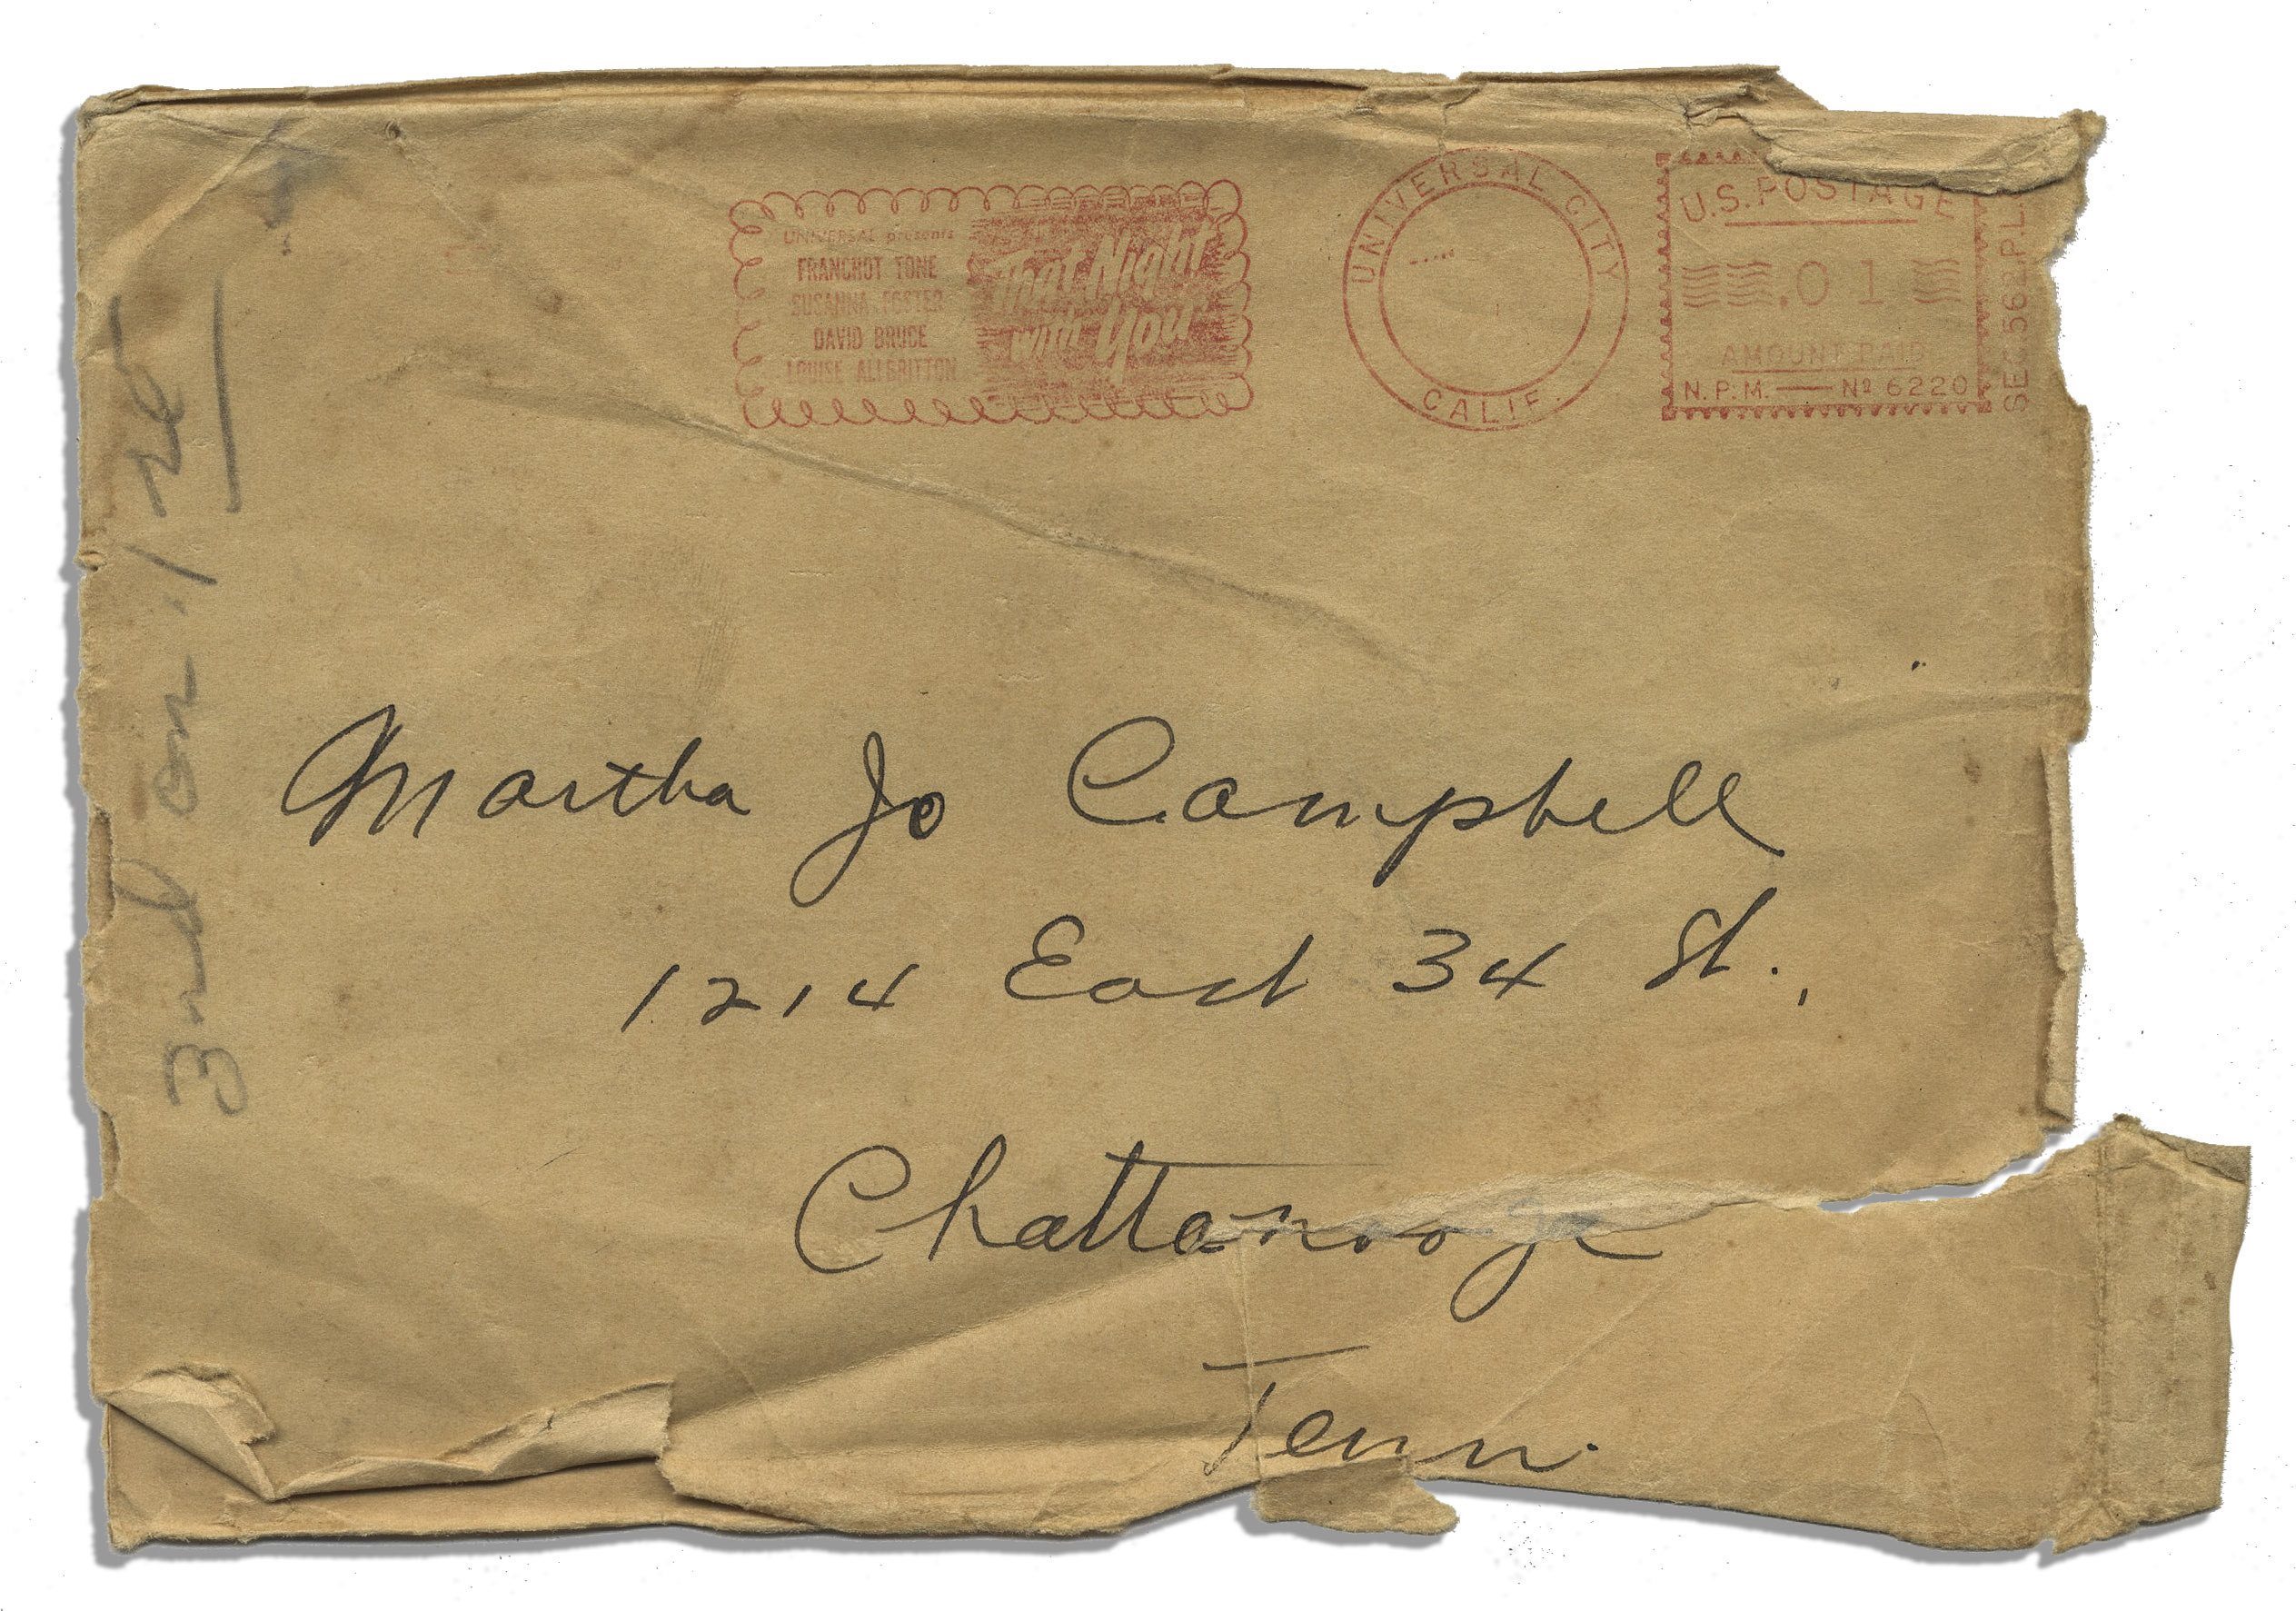 UNIVERSAL presents
FRANCHOT TONE
SUSANNA FOSTER
DAVID BRUCE
LOUISE ALLBRITTON
That Night
with You
UNIVERSAL CITY
CALIF.
U.S. POSTAGE
.01
AMOUNT PAID
N.P.M. — Nº 6220
SEC. 562 P.L.
3rd on
Martha Jo Campbell
1214 East 34 St.,
Chattanooga
Tenn.